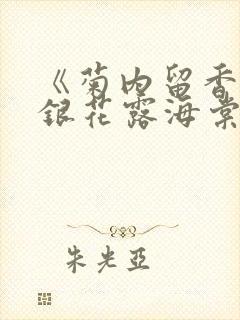 《菊内留香
銀花露海棠
朱光亞